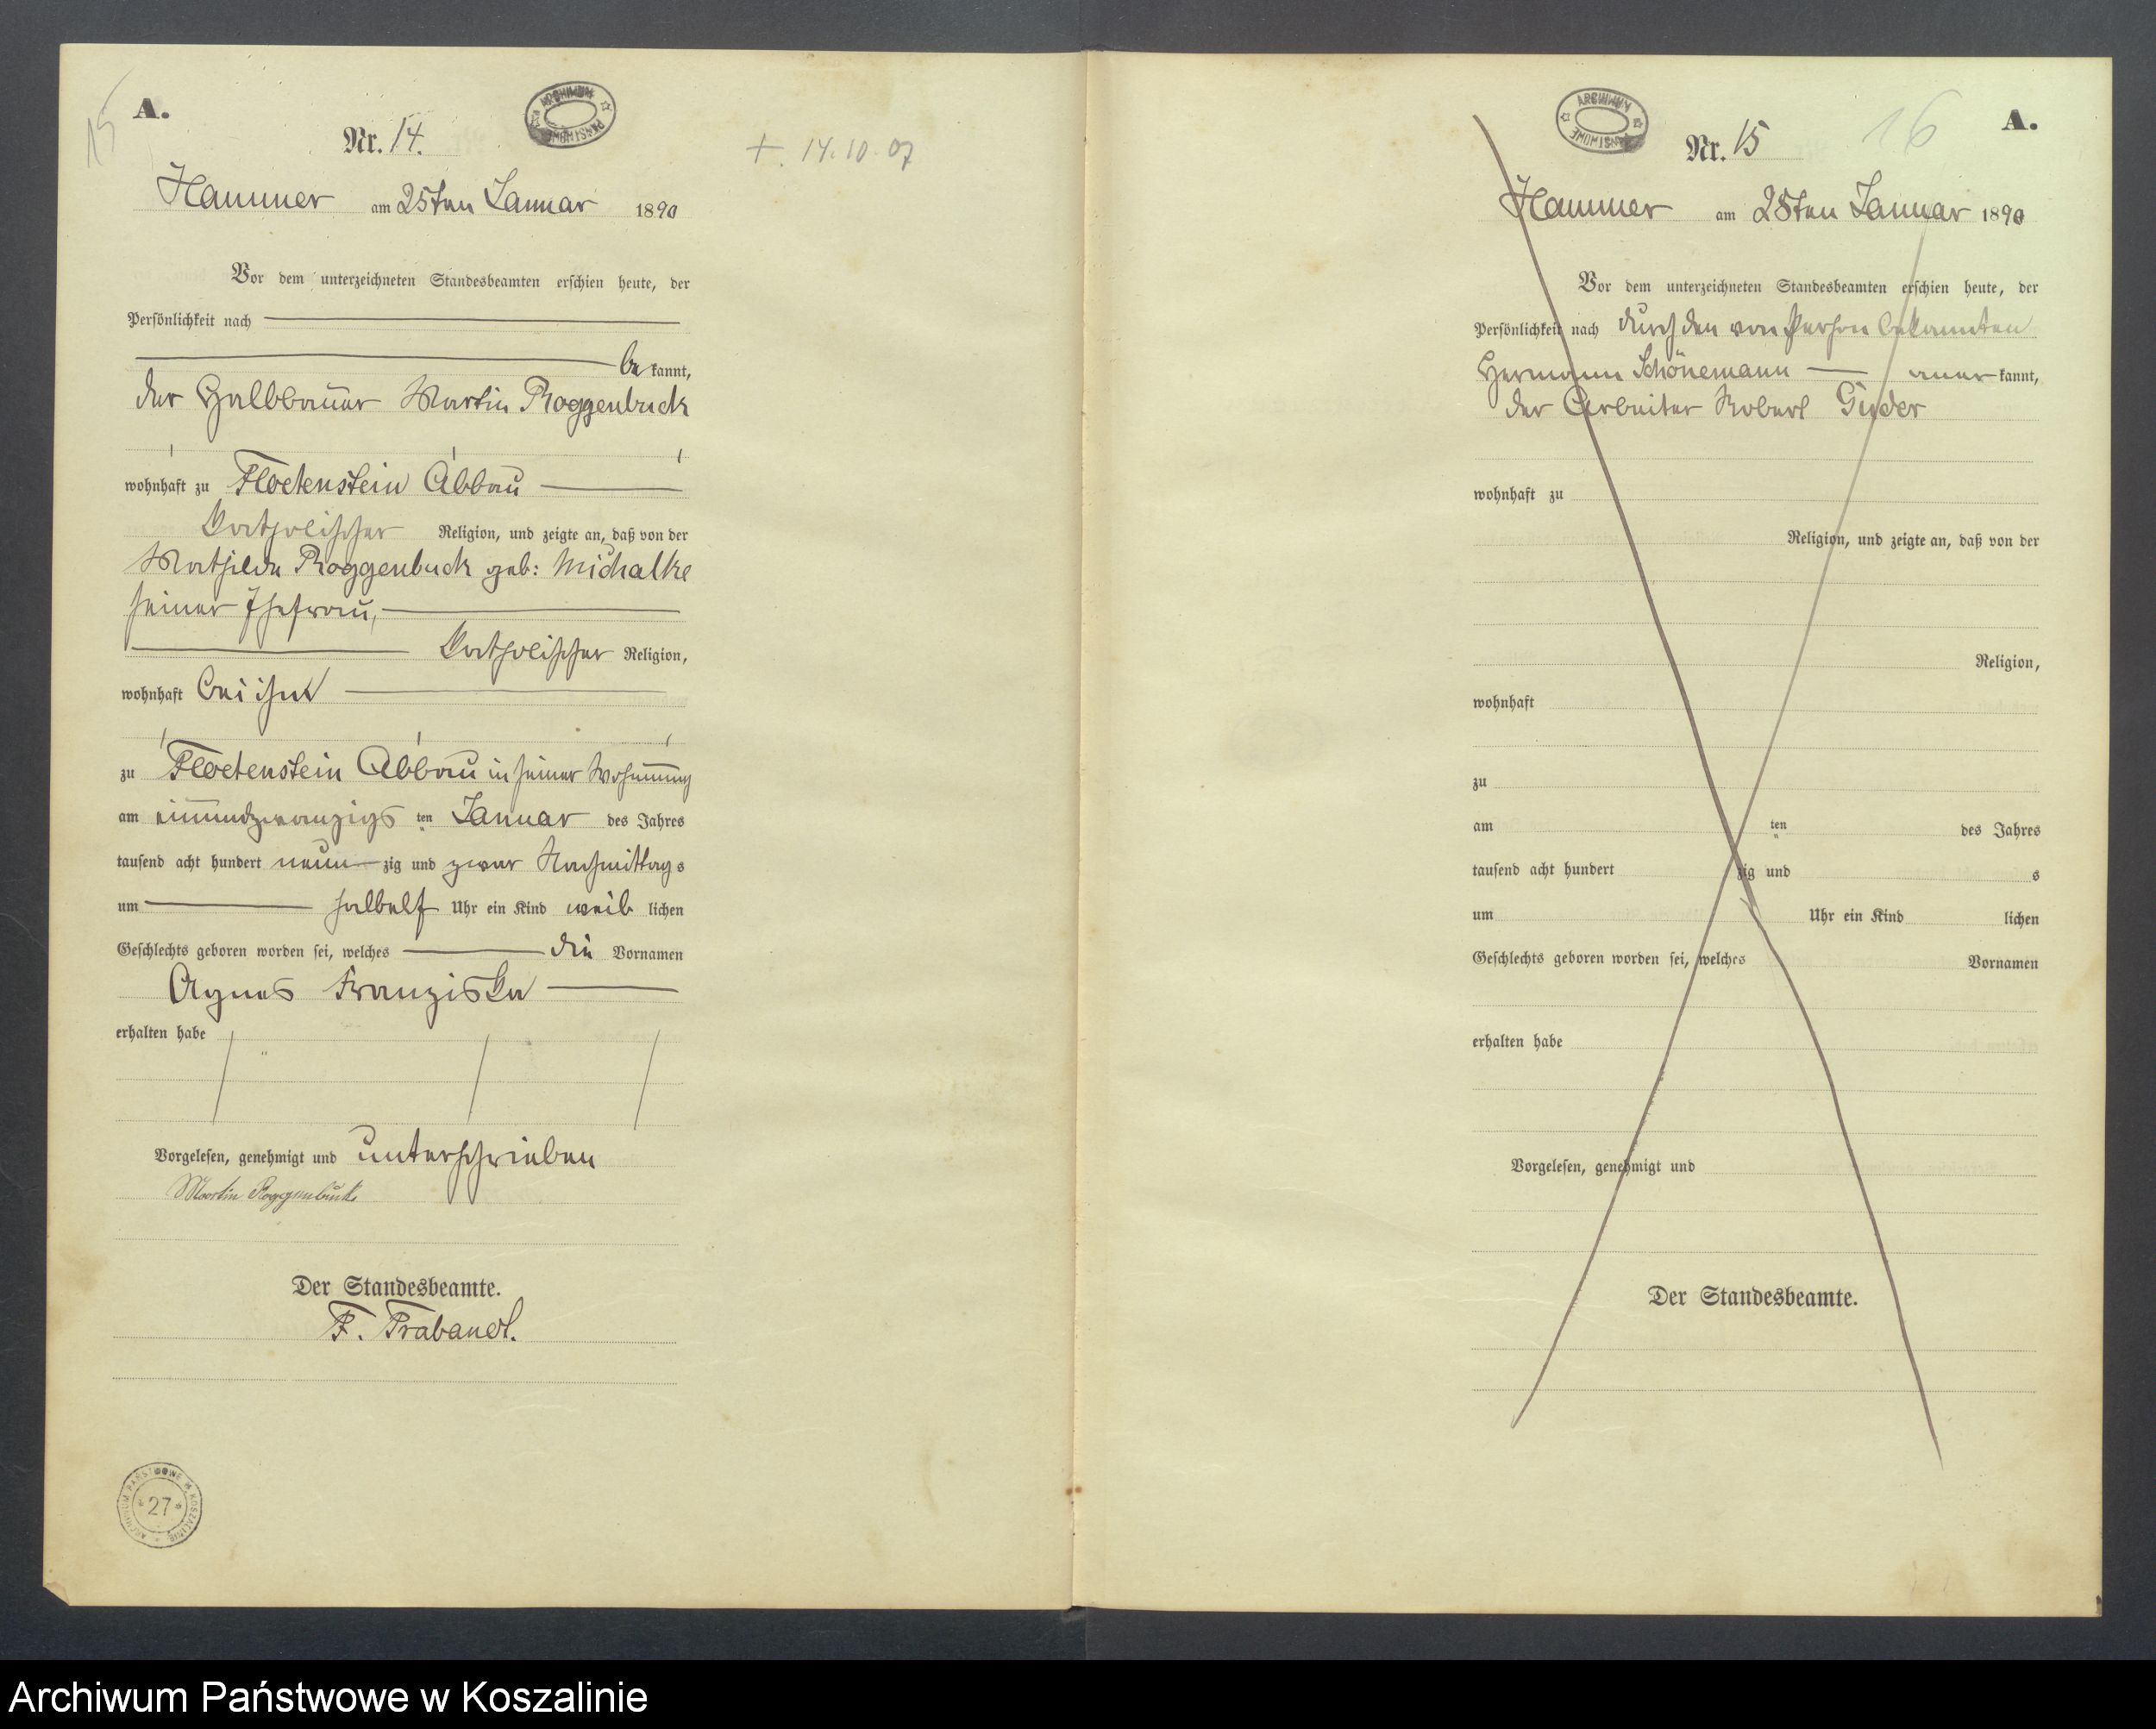 15
A.
Nr. 14.
ARCHIWUM PAŃSTWOWE
+. 14.10.07
Hammer am 25ten Januar 1890
Vor dem unterzeichneten Standesbeamten erschien heute, der
Persönlichkeit nach
be kannt,
der Halbbauer Martin Roggenbuck
wohnhaft zu Floetenstein Abbau
katholischer Religion, und zeigte an, daß von der
Mathilde Roggenbuck geb: Michalke
seiner Ehefrau,
katholischer Religion,
wohnhaft bei ihm
zu Floetenstein Abbau in seiner Wohnung
am einundzwanzigs ten Januar des Jahres
tausend acht hundert neun zig und zwar Nachmittag s
um halbelf Uhr ein Kind weib lichen
Geschlechts geboren worden sei, welches die Vornamen
Agnes Franziska
erhalten habe
Vorgelesen, genehmigt und unterschrieben
Martin Roggenbuck
Der Standesbeamte.
F. Trabandt.
ARCHIWUM PAŃSTWOWE W KOSZALINIE
* 27 *
ARCHIWUM PAŃSTWOWE
16
A.
Nr. 15
Hammer am 28ten Januar 1890
Vor dem unterzeichneten Standesbeamten erschien heute, der
Persönlichkeit nach durch den von Person bekannten
Hermann Schönemann aner kannt,
der Arbeiter Robert Guder
wohnhaft zu
Religion, und zeigte an, daß von der
Religion,
wohnhaft
zu
am ten des Jahres
tausend acht hundert zig und s
um Uhr ein Kind lichen
Geschlechts geboren worden sei, welches Vornamen
erhalten habe
Vorgelesen, genehmigt und
Der Standesbeamte.
Archiwum Państwowe w Koszalinie